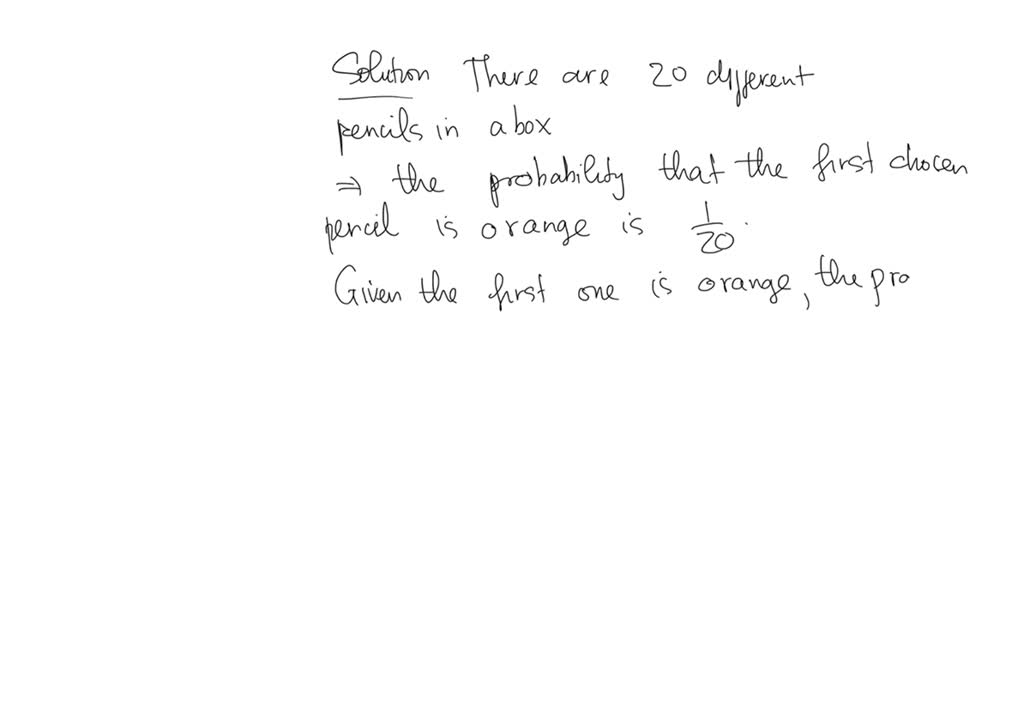 Solution There are 20 different
pencils in a box
⇒ the probability that the first chocen
pencil is orange is 1/20.
Given the first one is orange, the pro